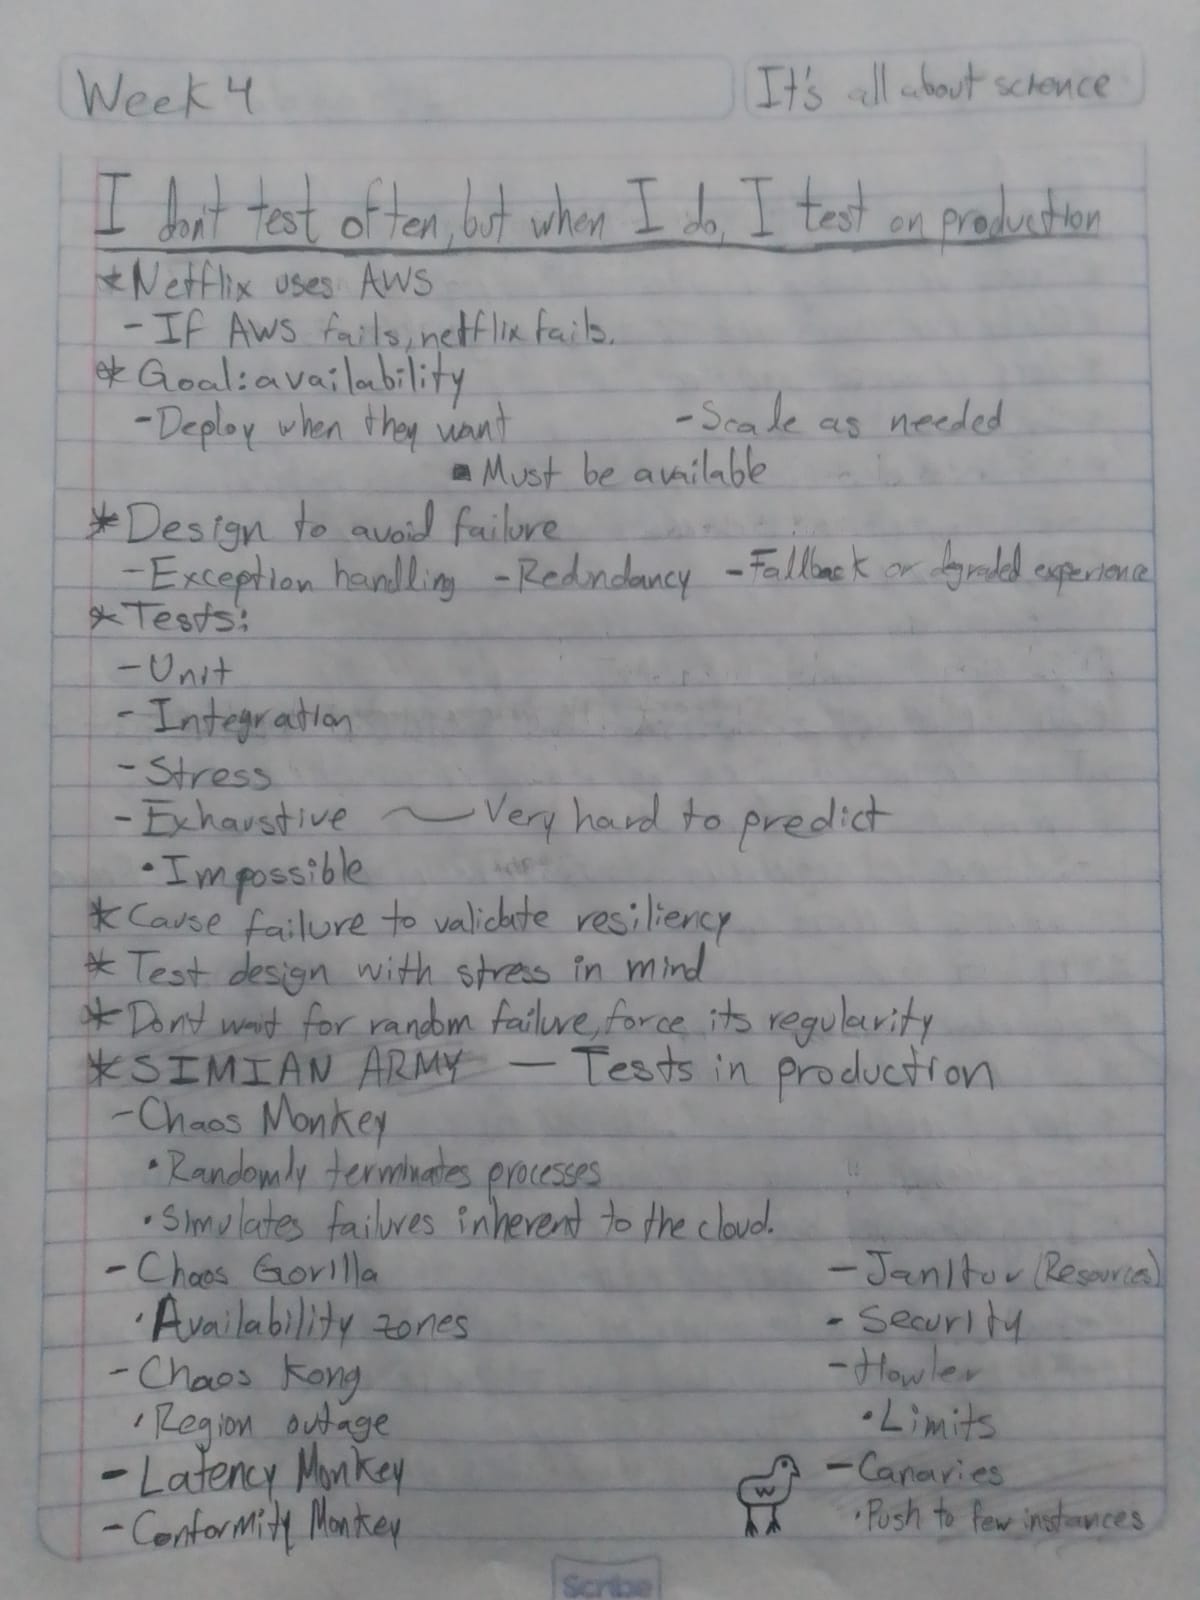 Week 4
It's all about science
I don't test often, but when I do, I test on production
* Netflix uses AWS
- If AWS fails, netflix fails.
* Goal: availability
- Deploy when they want - Scale as needed
▪ Must be available
* Design to avoid failure
- Exception handling - Redundancy - Fallback or degraded experience
* Tests:
- Unit
- Integration
- Stress
- Exhaustive ~ Very hard to predict
• Impossible
* Cause failure to validate resiliency
* Test design with stress in mind
* Dont wait for random failure, force its regularity
* SIMIAN ARMY — Tests in production
- Chaos Monkey
• Randomly terminates processes
• Simulates failures inherent to the cloud.
- Chaos Gorilla
• Availability zones
- Chaos Kong
• Region outage
- Latency Monkey
- Conformity Monkey
- Janitor (Resources)
- Security
- Howler
• Limits
- Canaries
• Push to few instances
W
Scribe